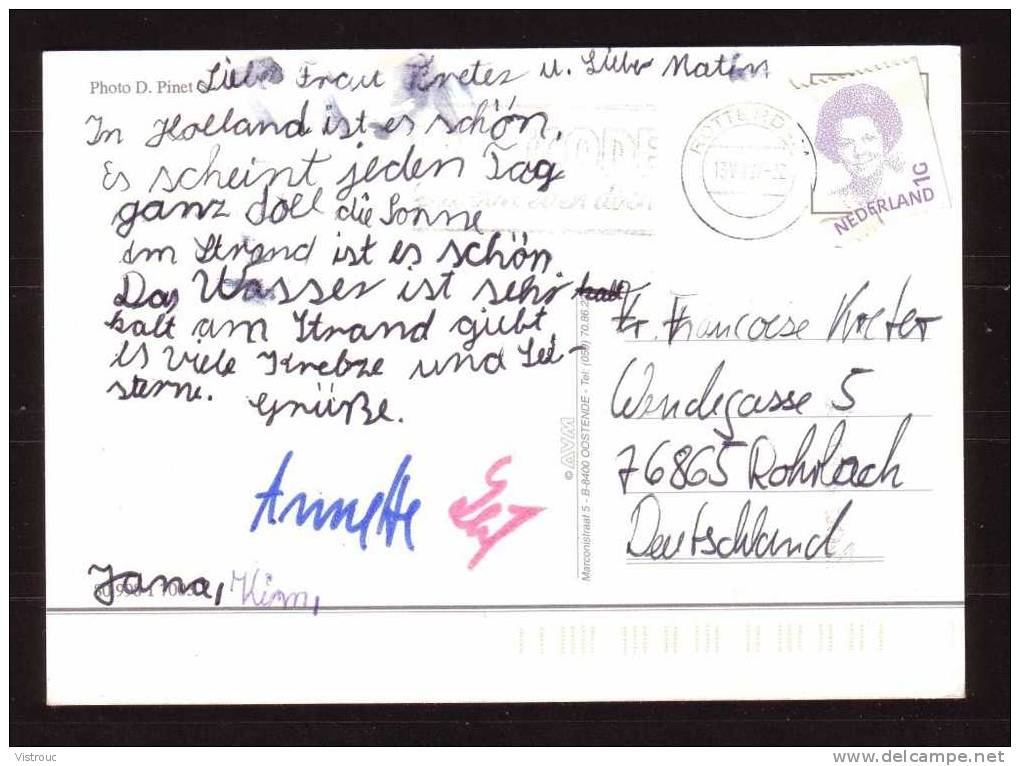 Photo D. Pinet
Liebe Frau Kreter u. Lieber Matin
In Holland ist es schön.
Es scheint jeden Tag
ganz doll die Sonne
am Strand ist es schön
Das Wasser ist sehr kalt
kalt am Strand giebt
es viele Krebze und See-
sterne.
Grüße.
Annette
Jana, Kim,
ROTTERDAM
NEDERLAND 1G
Fr. Francoise Kreter
Wendegasse 5
76865 Rohrbach
Deutschland
© AVM
Marconistraat 5 - B-8400 OOSTENDE - Tel: (059) 70.86.2
Vistrouc
www.delcampe.net